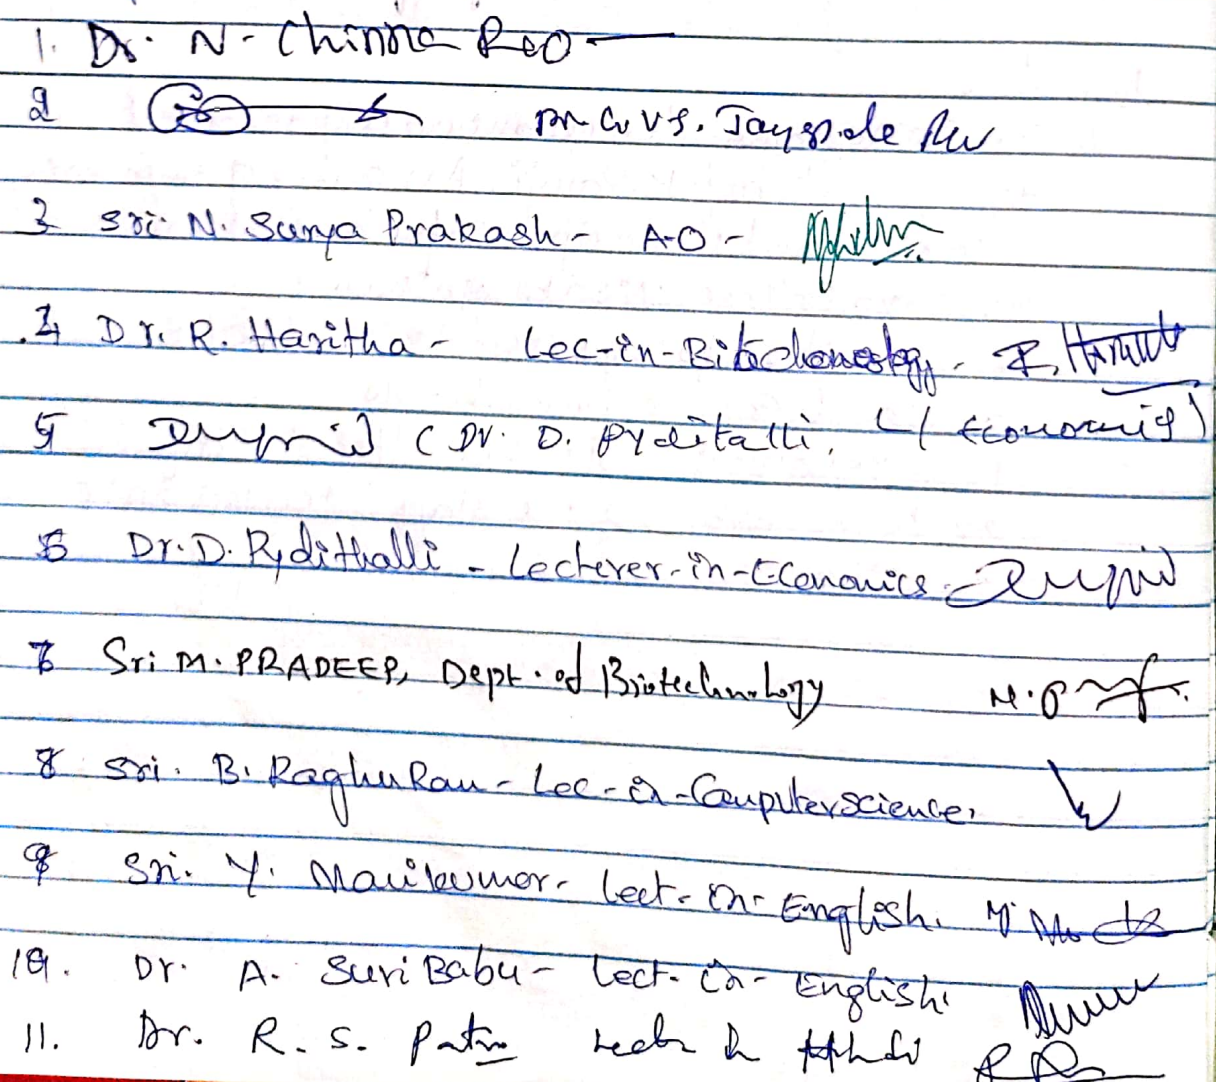 1. Dr. N. Chinna Rao
2 G.V.S. Jayapala Rao
3 Sri. N. Surya Prakash - A.O -
4 Dr. R. Haritha - Lec-in-Biotechnology - R. Haritha
5 (Dr. D. Pyditalli, L/ Economics)
6 Dr. D. Pydithalli - Lecterer-in-Economics -
7 Sri M. PRADEEP, Dept. of Biotechnology M. P
8 Sri. B. Raghu Ram - Lec-in-Computer science.
9 Sri. Y. Manikumar - Lect-in-English. Y.
10. Dr. A. Suri Babu - Lect-in-English.
11. Dr. R. S. Patro Lect in